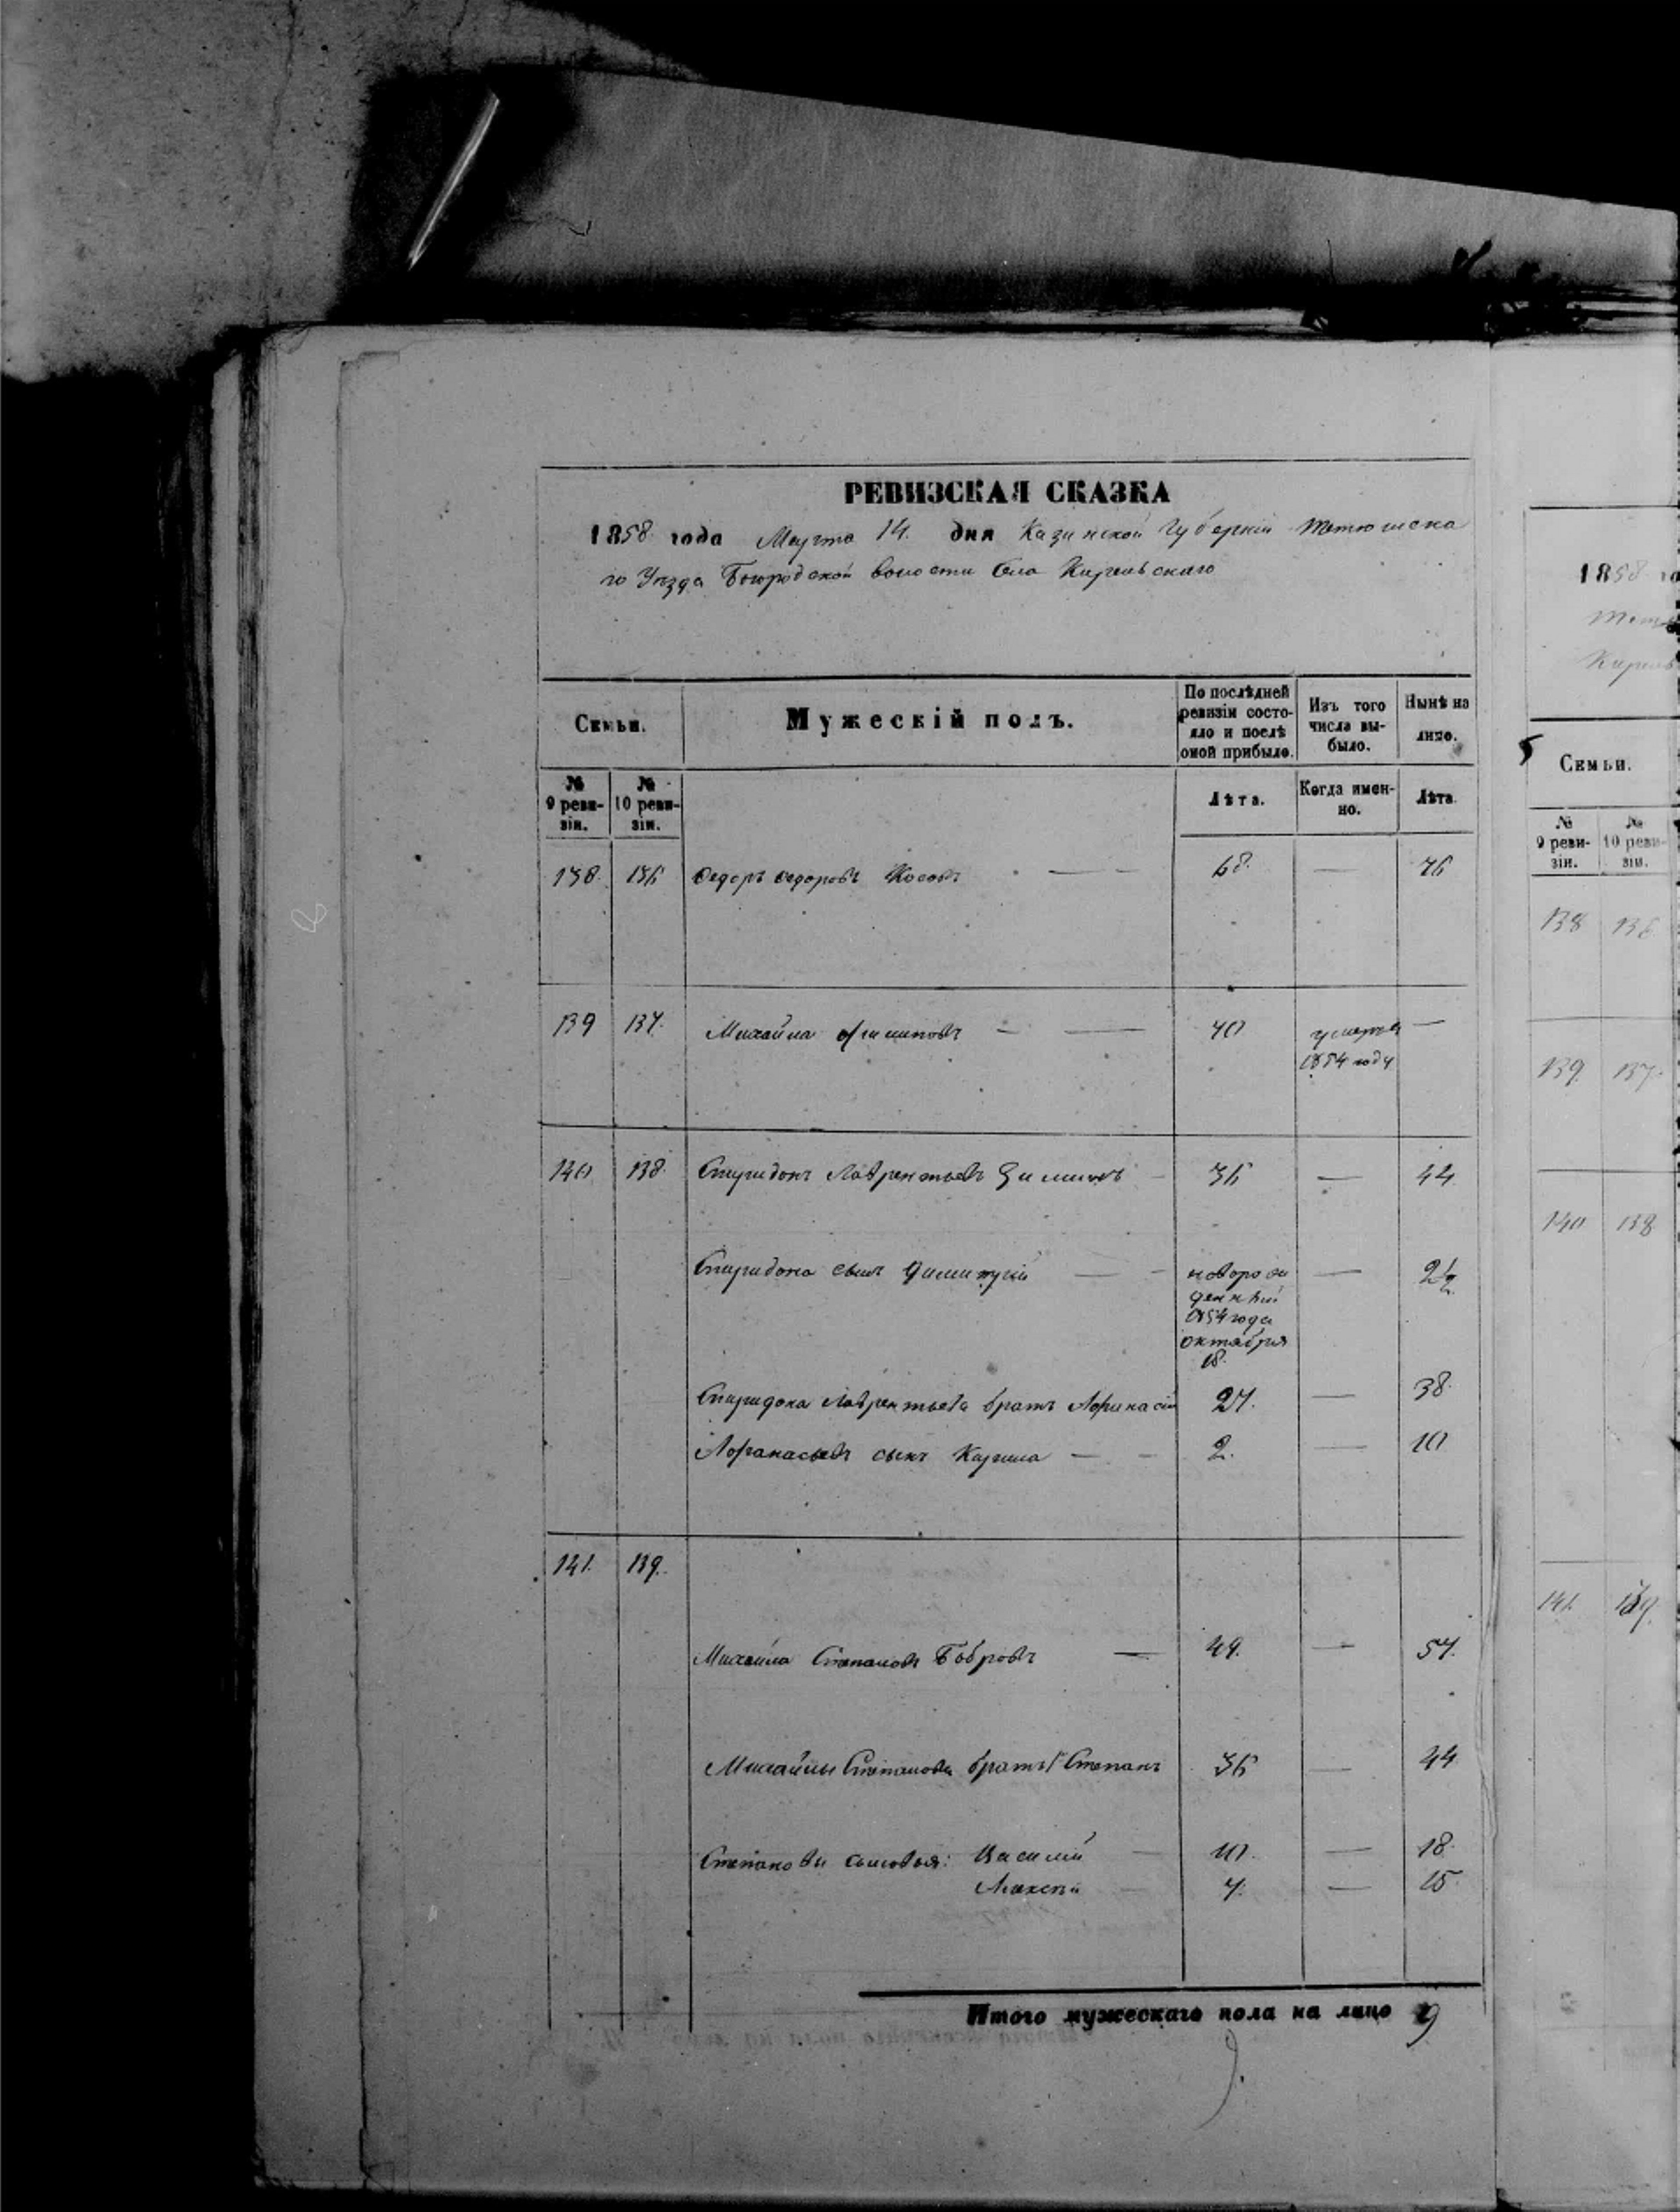 РЕВИЗСКАЯ СКАЗКА
1858 года Марта 14. дня Казанской Губерніи Тетюшска
го Уѣзда Богородской волости Села Кирельскаго
Семьи.
Мужескій полъ.
По послѣдней ревизіи состояло и послѣ оной прибыло.
Изъ того числа выбыло.
Нынѣ на лицо.
№ 9 реви-
зіи.
№ 10 реви-
зіи.
Лѣта.
Когда имен-
но.
Лѣта.
138. 136 Ѳедоръ Ѳедоровъ Косовъ — 68. — 76
139 137. Михайла — 40 умеръ —
1854 году
140 138. Спиридонъ Лаврентьевъ Зиминъ — 36 — 44
Спиридона сынъ Димитрій — новорож
денный
1854 года
октября
18. — 2½
Спиридона Лаврентьева братъ Афанасій 27. — 38.
Афанасьевъ сынъ Кирила — 2. — 10
141. 139.
Михайла Степановъ Бобровъ — 49. — 57.
Михайлы Степанова братъ Степанъ 36 — 44
Степановы сыновья: Василій — 10. — 18.
Алексѣй — 7. — 15.
Итого мужескаго пола на лицо 9
1858 го
Тетю
Кирельс
Семьи.
№ 9 реви-
зіи.
№ 10 реви-
зіи.
138 136
139. 137.
140 138
141. 139.